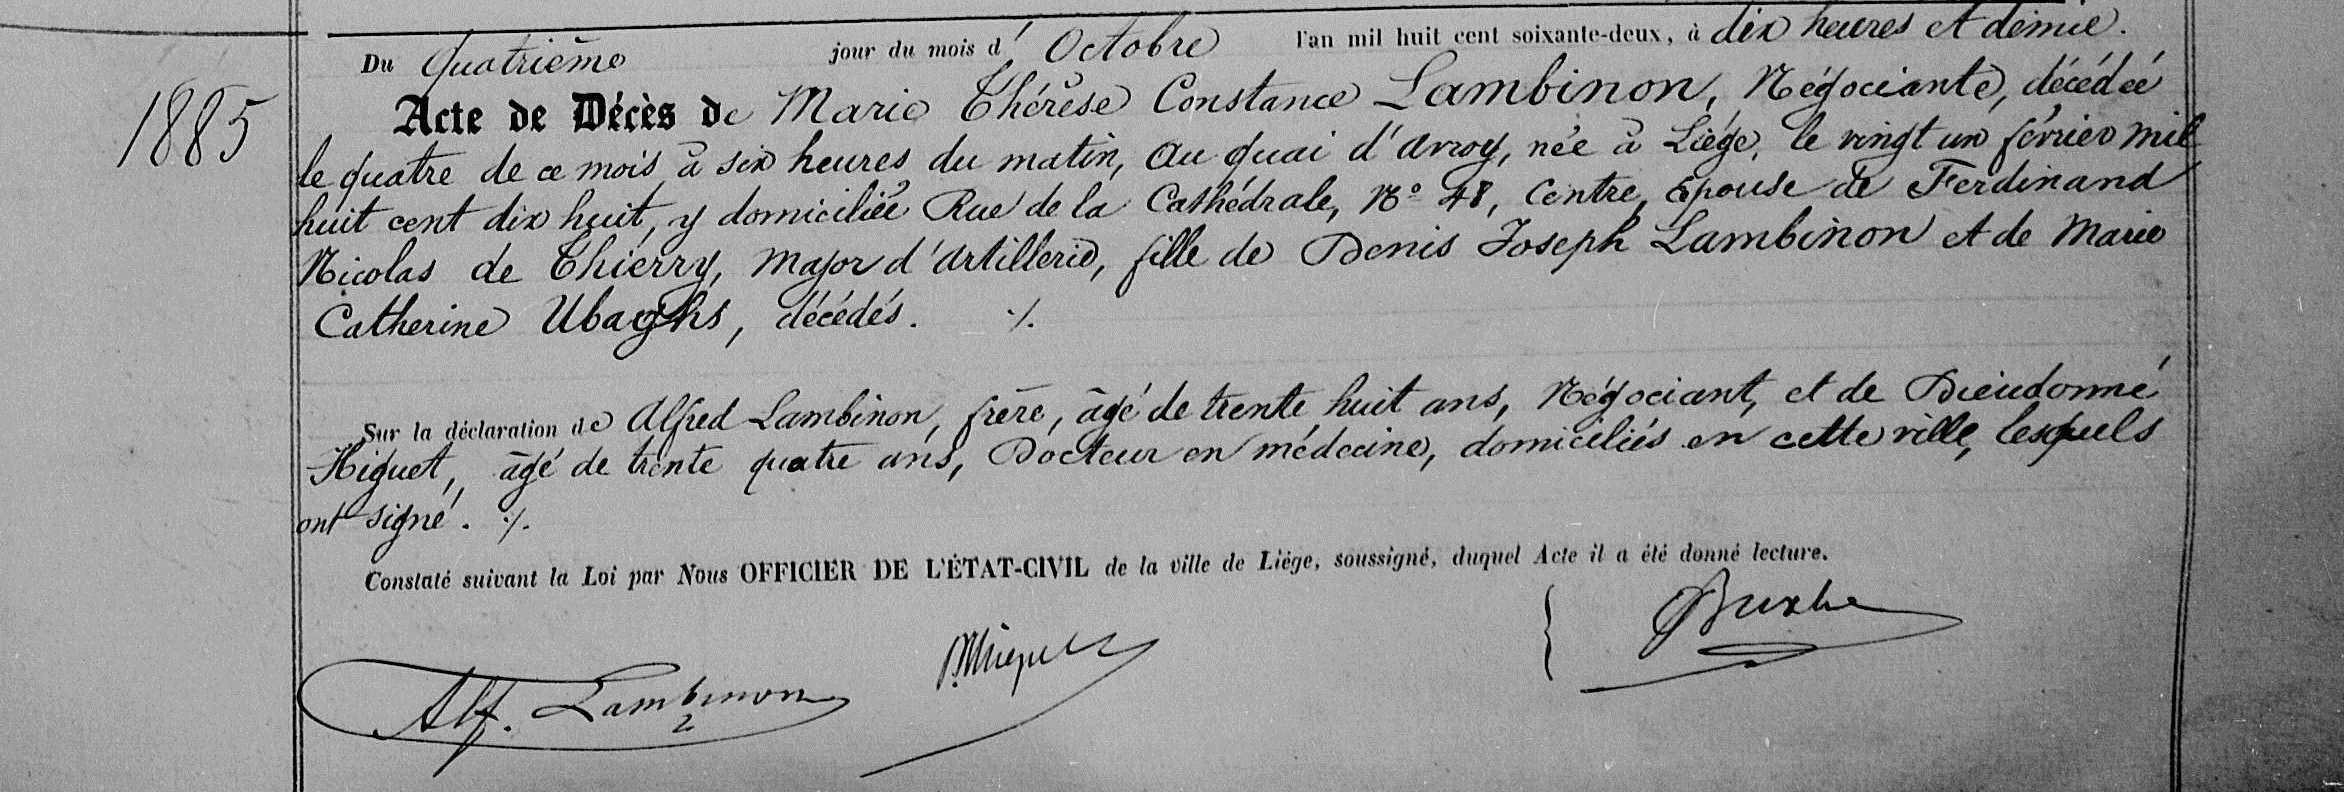 Du Quatrième jour du mois d' Octobre l'an mil huit cent soixante-deux, à dix heures et demie.
1885
Acte de Décès de Marie Thérèse Constance Lambinon, Négociante, décédée
le quatre de ce mois à six heures du matin, au quai d'avroy, née à Liége, le vingt un février mil
huit cent dix huit, y domiciliée Rue de la Cathédrale, No 48, Centre, Epouse de Ferdinand
Nicolas de Thierry, Major d'artillerie, fille de Denis Joseph Lambinon et de Marie
Catherine Ubaghs, décédés. ./.
Sur la déclaration de Alfred Lambinon, frère, âgé de trente huit ans, Négociant, et de Dieudonné
Higuet, âgé de trente quatre ans, Docteur en médecine, domiciliés en cette ville, lesquels
ont signé. ./.
Constaté suivant la Loi par Nous OFFICIER DE L'ÉTAT-CIVIL de la ville de Liége, soussigné, duquel Acte il a été donné lecture.
Alf. Lambinon